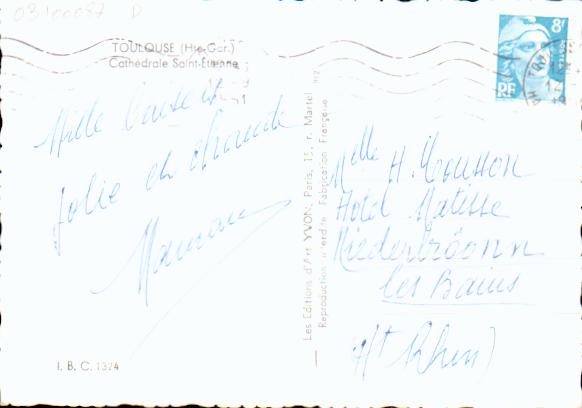 03100087 D
TOULOUSE (Hte-Gar.)
Cathédrale Saint-Étienne
8F
RF
Mille baisers
Jolie et chaude
Maman
Les Editions d'Art YVON, Paris, 15, r. Martel
Reproduction interdite Fabrication Française
Mlle H. Mousson
Hotel Matisse
Niederbroonn
les Bains
(Ht Rhin)
I. B. C. 1324